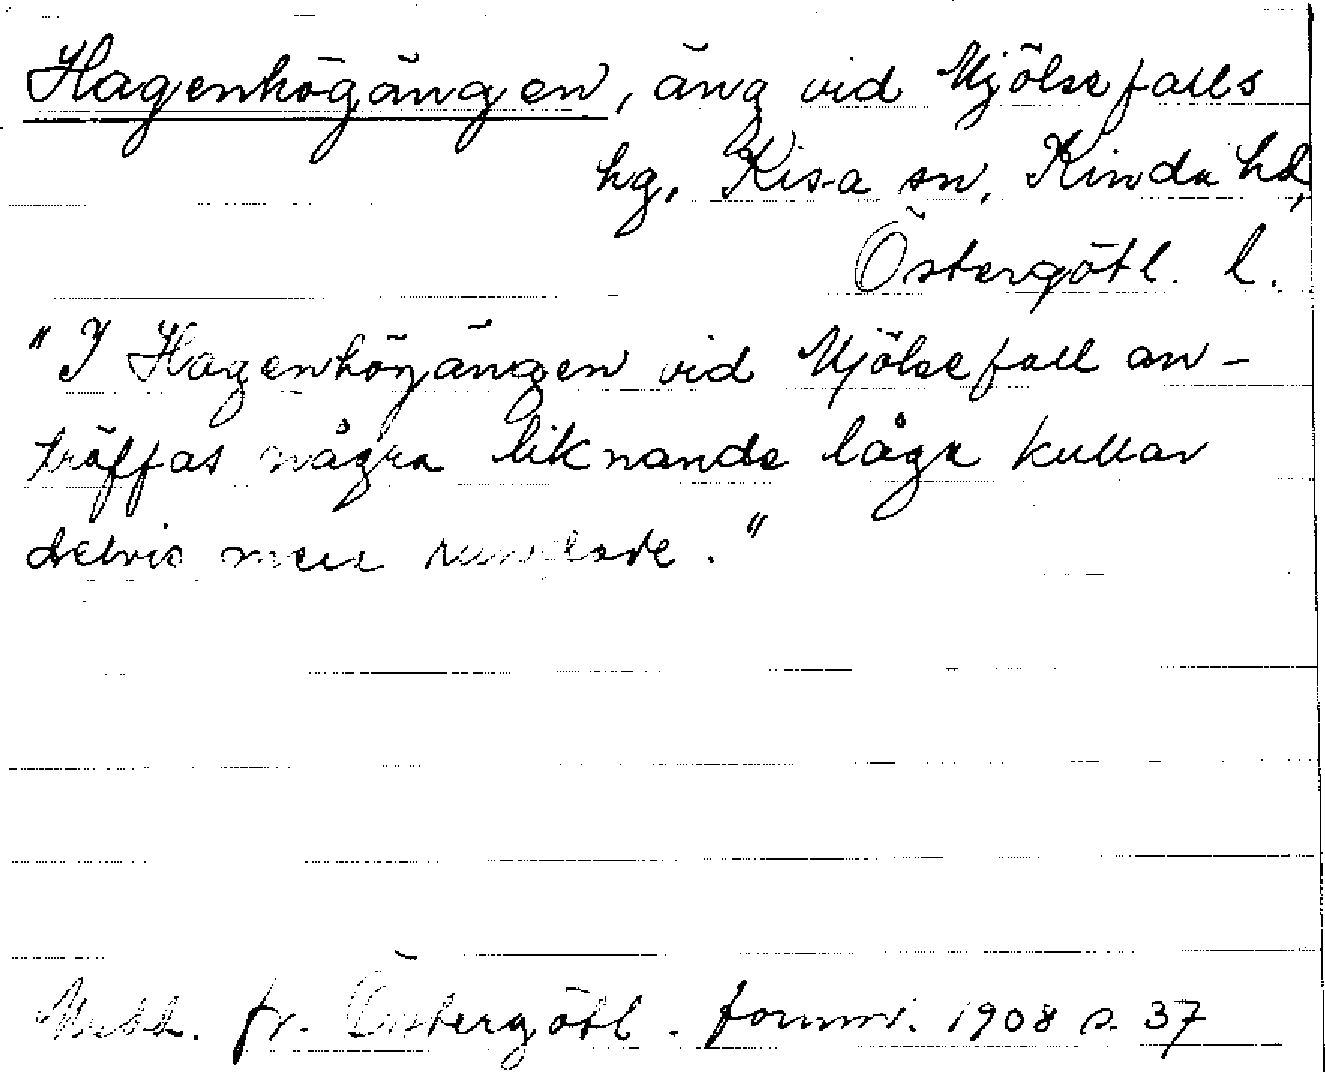 Hagenhögängen, äng vid Mjölsefalls
hg, Kisa sn, Kinda hd,
Östergötl. l.
"I Hagenhögängen vid Mjölsefall an-
träffas några liknande låga kullar
delvis mera rundade."
Medd. fr. Östergötl. fornmi. 1908 s. 37